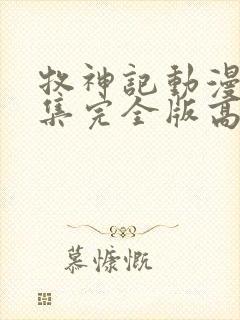 牧神記動漫
集完全版高
慕慷慨